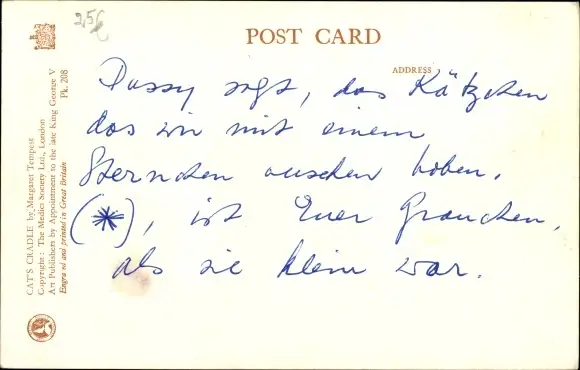 25€
POST CARD
ADDRESS
Pussy sagt, das Kätzchen
das wir mit einem
Sternchen versehen haben,
(*), ist Euer Grauchen,
als sie klein war.
CAT'S CRADLE by Margaret Tempest
Copyright: The Medici Society Ltd., London
Art Publishers by Appointment to the late King George V
Pk. 208
Engraved and printed in Great Britain